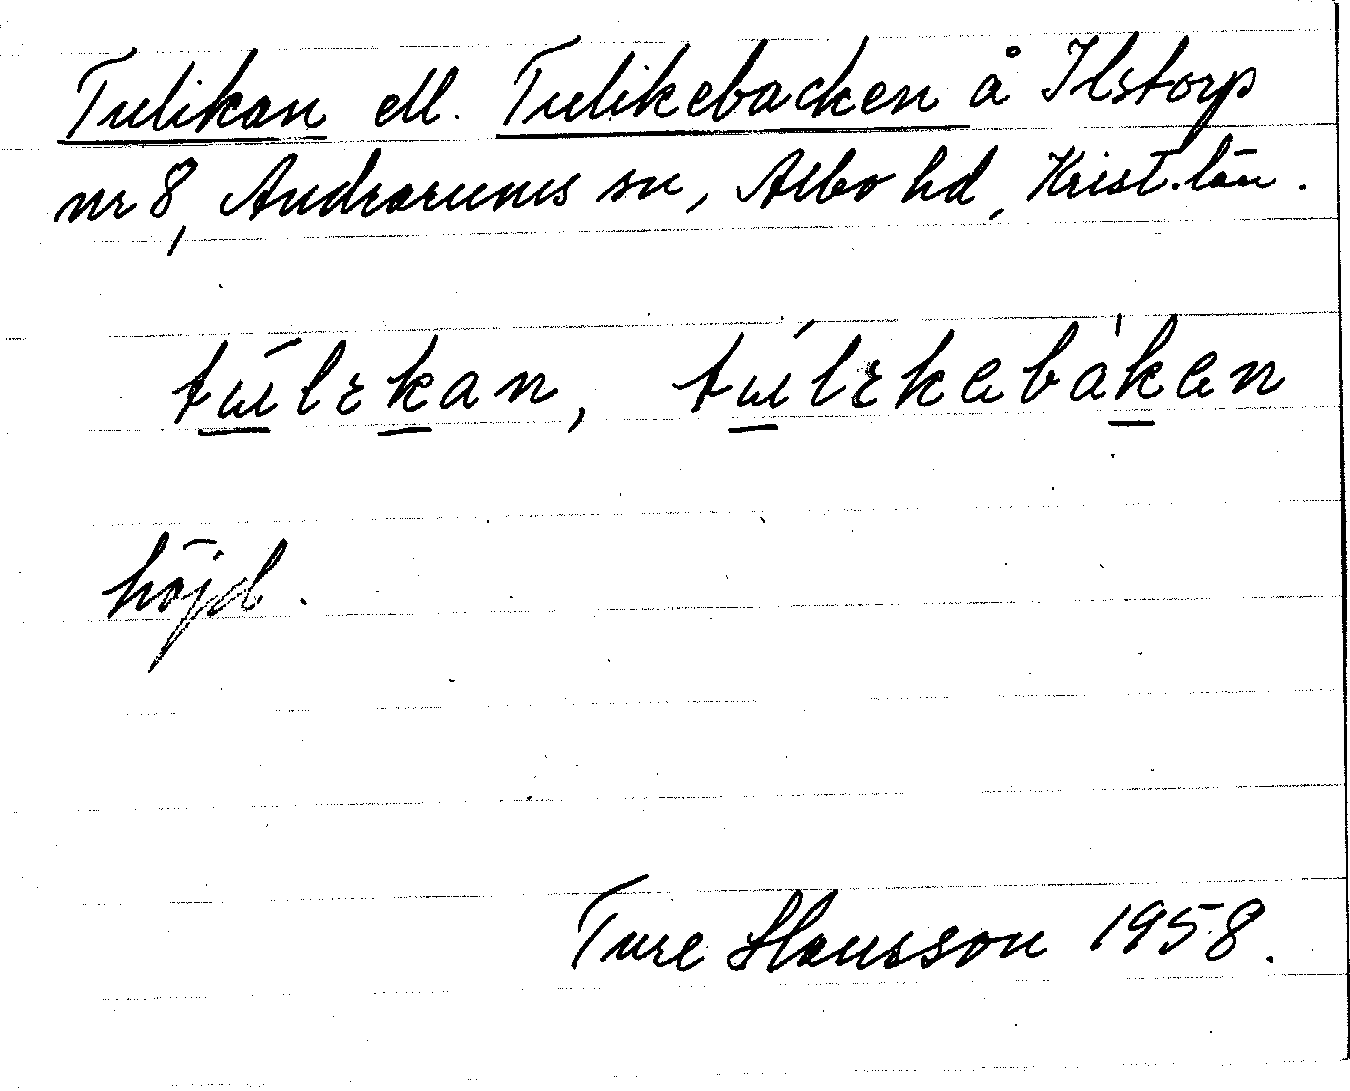 Tulikan ell. Tulikebacken å Ilstorp
nr 8, Andrarums sn, Albo hd, Krist. län.
höjd.
Ture Hansson 1958.